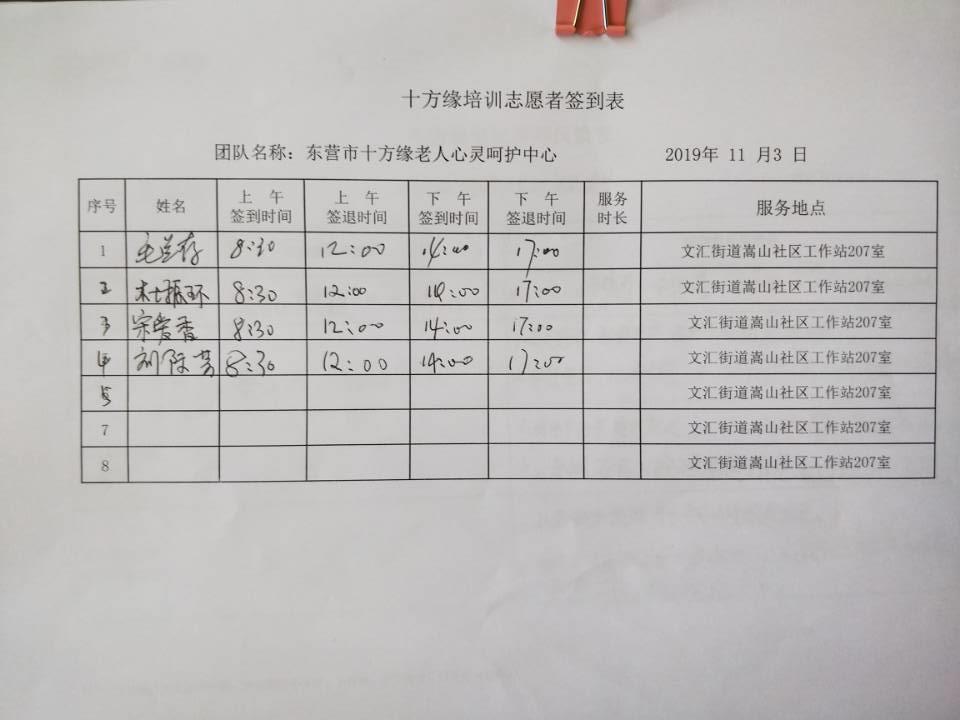 十方缘培训志愿者签到表
团队名称：东营市十方缘老人心灵呵护中心 2019年 11 月3 日
序号 姓名 上 午 签到时间 上 午 签退时间 下 午 签到时间 下 午 签退时间 服务 时长 服务地点
1 8:30 12:00 14:00 17:00 文汇街道嵩山社区工作站207室
2 杜振环 8:30 12:00 14:00 17:00 文汇街道嵩山社区工作站207室
3 宋爱香 8:30 12:00 14:00 17:00 文汇街道嵩山社区工作站207室
4 8:30 12:00 14:00 17:00 文汇街道嵩山社区工作站207室
5 文汇街道嵩山社区工作站207室
7 文汇街道嵩山社区工作站207室
8 文汇街道嵩山社区工作站207室